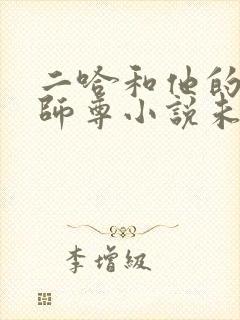 二哈和他的
師尊小說未
李增級